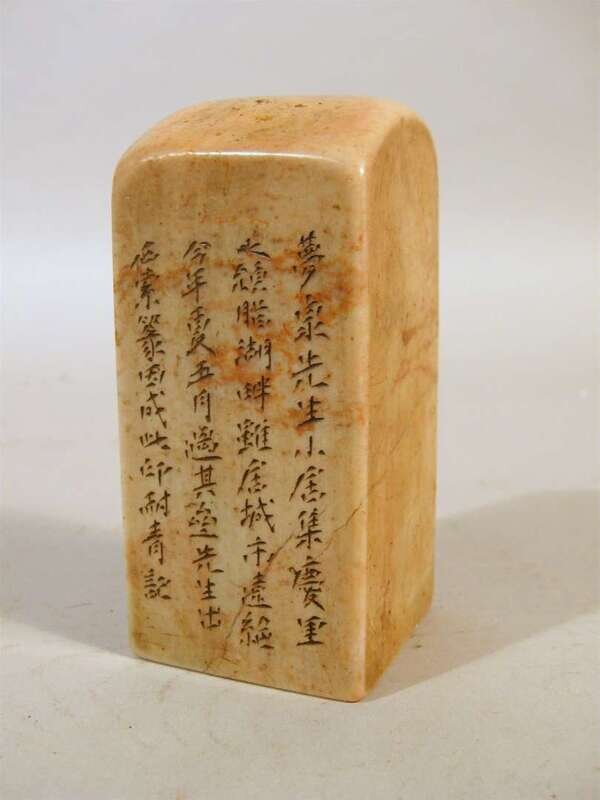 夢家先生小居集慶里
臨湖畔雖居城市遠絕
今年夏五月過其先生出
石索篆因成此印耐青記